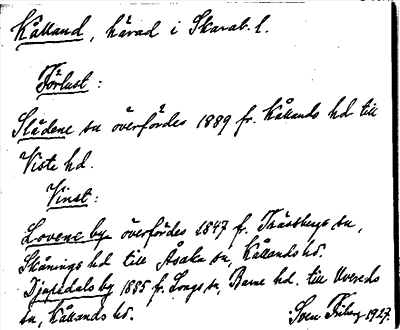 Kålland, härad i Skarab. l.
Förlust:
Slädene sn överfördes 1889 fr. Kållands hd till
Viste hd.
Vinst:
Lovene by överfördes 1847 f. Trässbergs sn,
Skånings hd till Åsaka sn, Kållands hd.
Djupedals by 1885 f. Longs sn, Barne hd. till Uvereds
sn, Kållands hd.
Sven 1927.